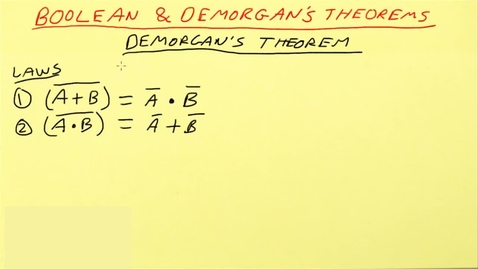 BOOLEAN & DEMORGAN'S THEOREMS
DEMORGAN'S THEOREM
LAWS
① (A̅ ̅+̅ ̅B̅) = A̅ • B̅
② (A̅ ̅•̅ ̅B̅) = A̅ + B̅